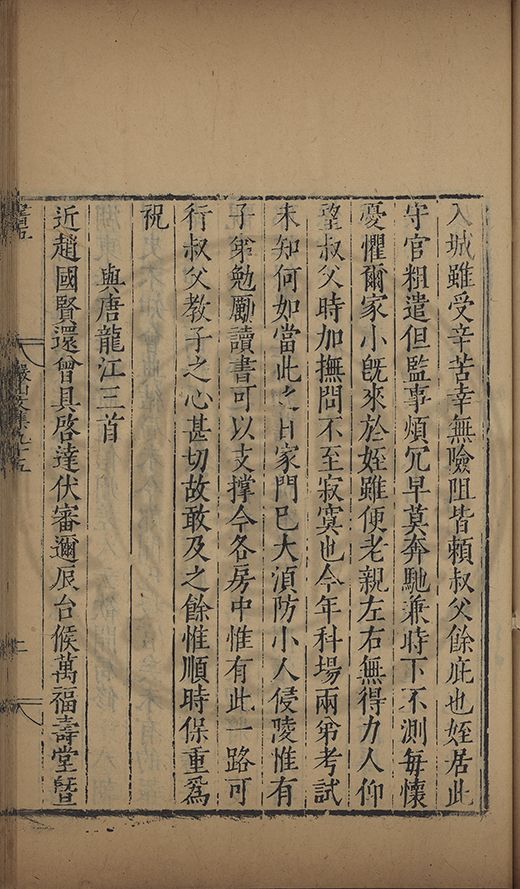 入城雖受辛苦幸無險阻皆賴叔父餘庇也姪居此
守官粗遣但監事煩冗早莫奔馳兼時下不測每懷
憂懼爾家小旣來於姪雖便老親左右無得力人仰
望叔父時加撫問不至寂寞也今年科場兩弟考試
未知何如當此之日家門已大湏防小人侵陵惟有
子弟勉勵讀書可以支撐今各房中惟有此一路可
行叔父教子之心甚切故敢及之餘惟順時保重爲
祝
與唐龍江三首
近趙國賢還曾具啓達伏審邇辰台候萬福壽堂曁
儼山文集九十五
二